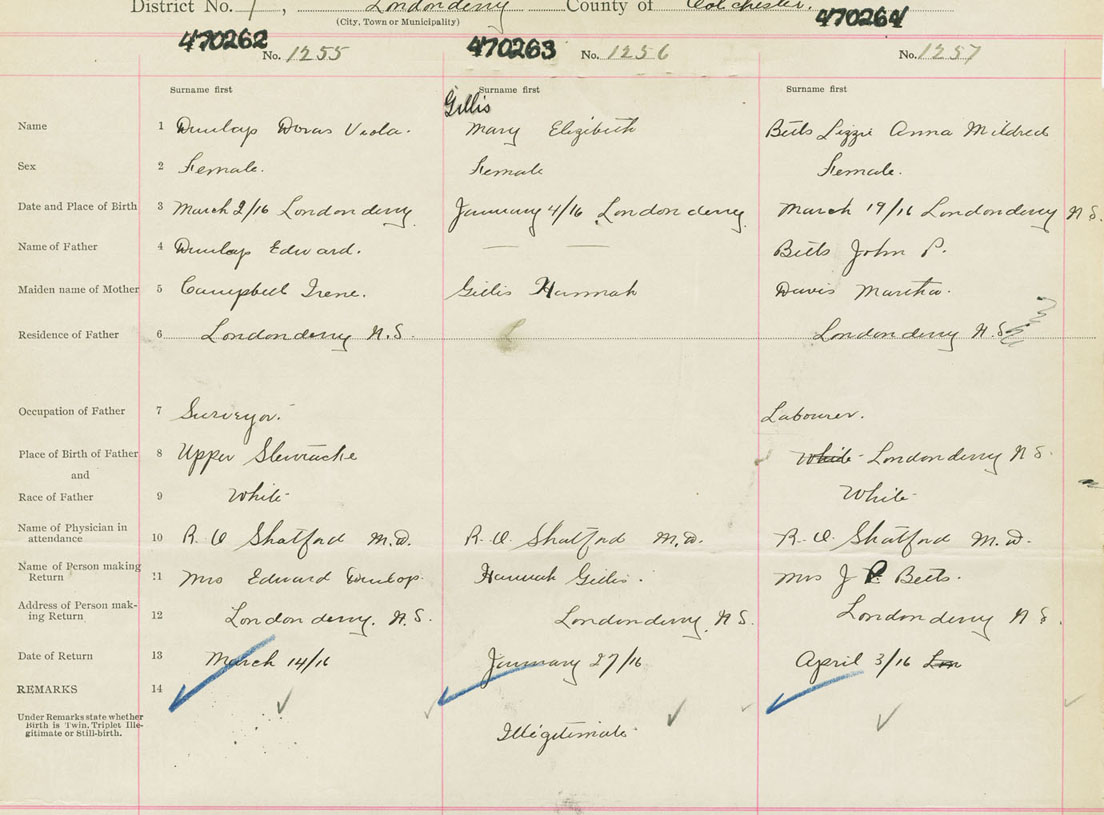 District No. 1, Londonderry County of Colchester.
(City, Town or Municipality)
470262 470263 470264
No. 1255 No. 1256 No. 1257
Surname first Surname first Surname first
Gillis
Name 1 Dunlap Doras Veola. Mary Elizibeth Betts Lizzie Anna Mildred
Sex 2 Female. Female Female.
Date and Place of Birth 3 March 2/16 Londonderry January 4/16 Londonderry March 19/16 Londonderry N S.
Name of Father 4 Dunlap Edward. — — Betts John P.
Maiden name of Mother 5 Campbell Irene. Gillis Hannah Davis Martha.
Residence of Father 6 Londonderry N.S. Londonderry N.S.
Occupation of Father 7 Surveyor. Labourer.
Place of Birth of Father 8 Upper Stewiacke White Londonderry N S.
and
Race of Father 9 White White
Name of Physician in
attendance 10 R. O Shatford M.D. R. O Shatford M.D. R. O. Shatford M.D.
Name of Person making
Return 11 Mrs Edward Dunlop. Hannah Gillis. Mrs J P. Betts.
Address of Person mak-
ing Return 12 Londonderry. N.S. Londonderry. N S. Londonderry N S.
Date of Return 13 March 14/16 January 27/16 April 3/16 Lon
REMARKS 14
Under Remarks state whether
Birth is Twin, Triplet Ille-
gitimate or Still-birth.
Illegitimate.